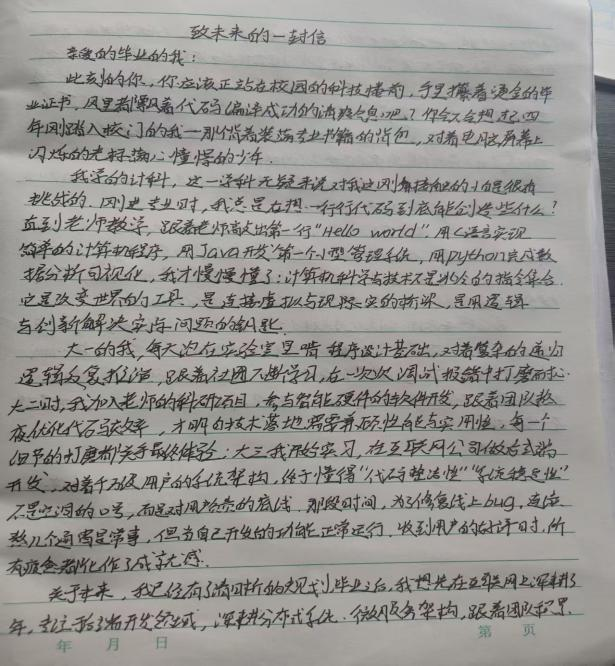 致未来的一封信
亲爱的毕业的我:
此刻的你,你应该正站在校园的科技楼前,手里攥着烫金的毕
业证书,风里都飘着代码编译成功的清爽气息吧?你会不会想起四
年刚踏入校门的我—那个背着装满专业书籍的背包,对着电脑屏幕上
闪烁的光标满心憧憬的少年.
我学的计科,这一学科无疑来说对我这刚刚接触的小白是很有
挑战的.刚进专业时,我总是在想一行行代码到底能创造些什么?
直到老师教学,跟着老师敲出第一行"Hello world".用C语言实现
简单的计算机程序,用Java开发第一个小型管理系统,用python完成数
据分析可视化,我才慢慢懂了:计算机科学与技术不是冰冷的指令集合.
它是改变世界的工具,是连接虚拟与现实的桥梁,是用逻辑
与创新解决实际问题的钥匙.
大一的我,每天泡在实验室里啃程序设计基础,对着复杂的递归
逻辑反复推演,跟着社团不断学习,在一次次调试报错中打磨耐心.
大二时,我加入老师的科研项目,参与智能硬件的软件开发,跟着团队熬
夜优化代码效率,才明白技术落地需要兼顾性能与实用性,每一个
细节的打磨都关乎最终体验;大三我开始实习,在互联网公司做后端
开发,对着千万级用户的系统架构,终于懂得"代码整洁性""系统稳定性"
不是空洞的口号,而是对用户负责的底线.那段时间,为了修复线上bug,连续
熬几个通宵是常事,但当自己开发的功能正常运行.收到用户的好评时,所
有疲惫都化作了成就感.
关于未来,我已经有了清晰的规划毕业之后,我想先在互联网上深耕几
年,专注于后端开发领域,深耕分布式系统.微服务架构,跟着团队积累.
年 月 日 第 页